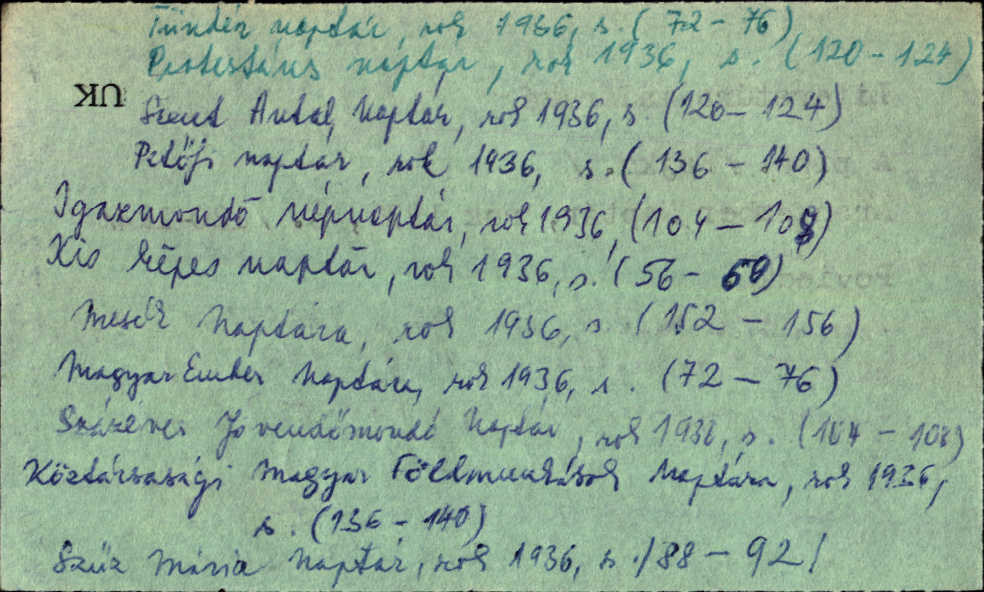 Tündér naptár, rok 1936, s. (72 - 76)
Protestáns naptár, rok 1936, s. (120 - 124)
UK
Szent Antal Naptár, rok 1936, s. (120 - 124)
Petőfi naptár, rok 1936, s. (136 - 140)
Igazmondó népnaptár, rok 1936, (104 - 108)
Kis képes naptár, rok 1936, s. (56 - 60)
Mesék Naptára, rok 1936, s. (152 - 156)
Magyar Ember Naptára, rok 1936, s. (72 - 76)
Százéves Jövendőmondó Naptár, rok 1938, s. (104 - 108)
Köztársasági Magyar Földmunkások Naptára, rok 1936,
s. (136 - 140)
Szűz Mária Naptár, rok 1936, s. /88 - 92/